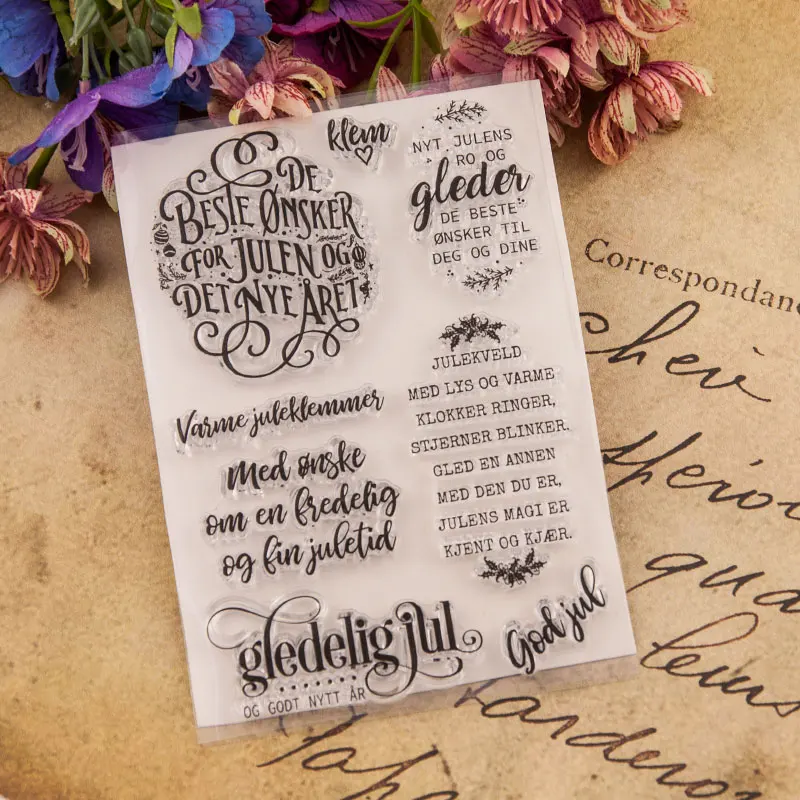 klem
DE
BESTE ØNSKER
FOR JULEN OG
DET NYE ÅRET
NYT JULENS
RO OG
gleder
DE BESTE
ØNSKER TIL
DEG OG DINE
JULEKVELD
MED LYS OG VARME
KLOKKER RINGER,
STJERNER BLINKER.
GLED EN ANNEN
MED DEN DU ER,
JULENS MAGI ER
KJENT OG KJÆR.
Varme juleklemmer
Med ønske
om en fredelig
og fin juletid
gledelig jul
OG GODT NYTT ÅR
God jul